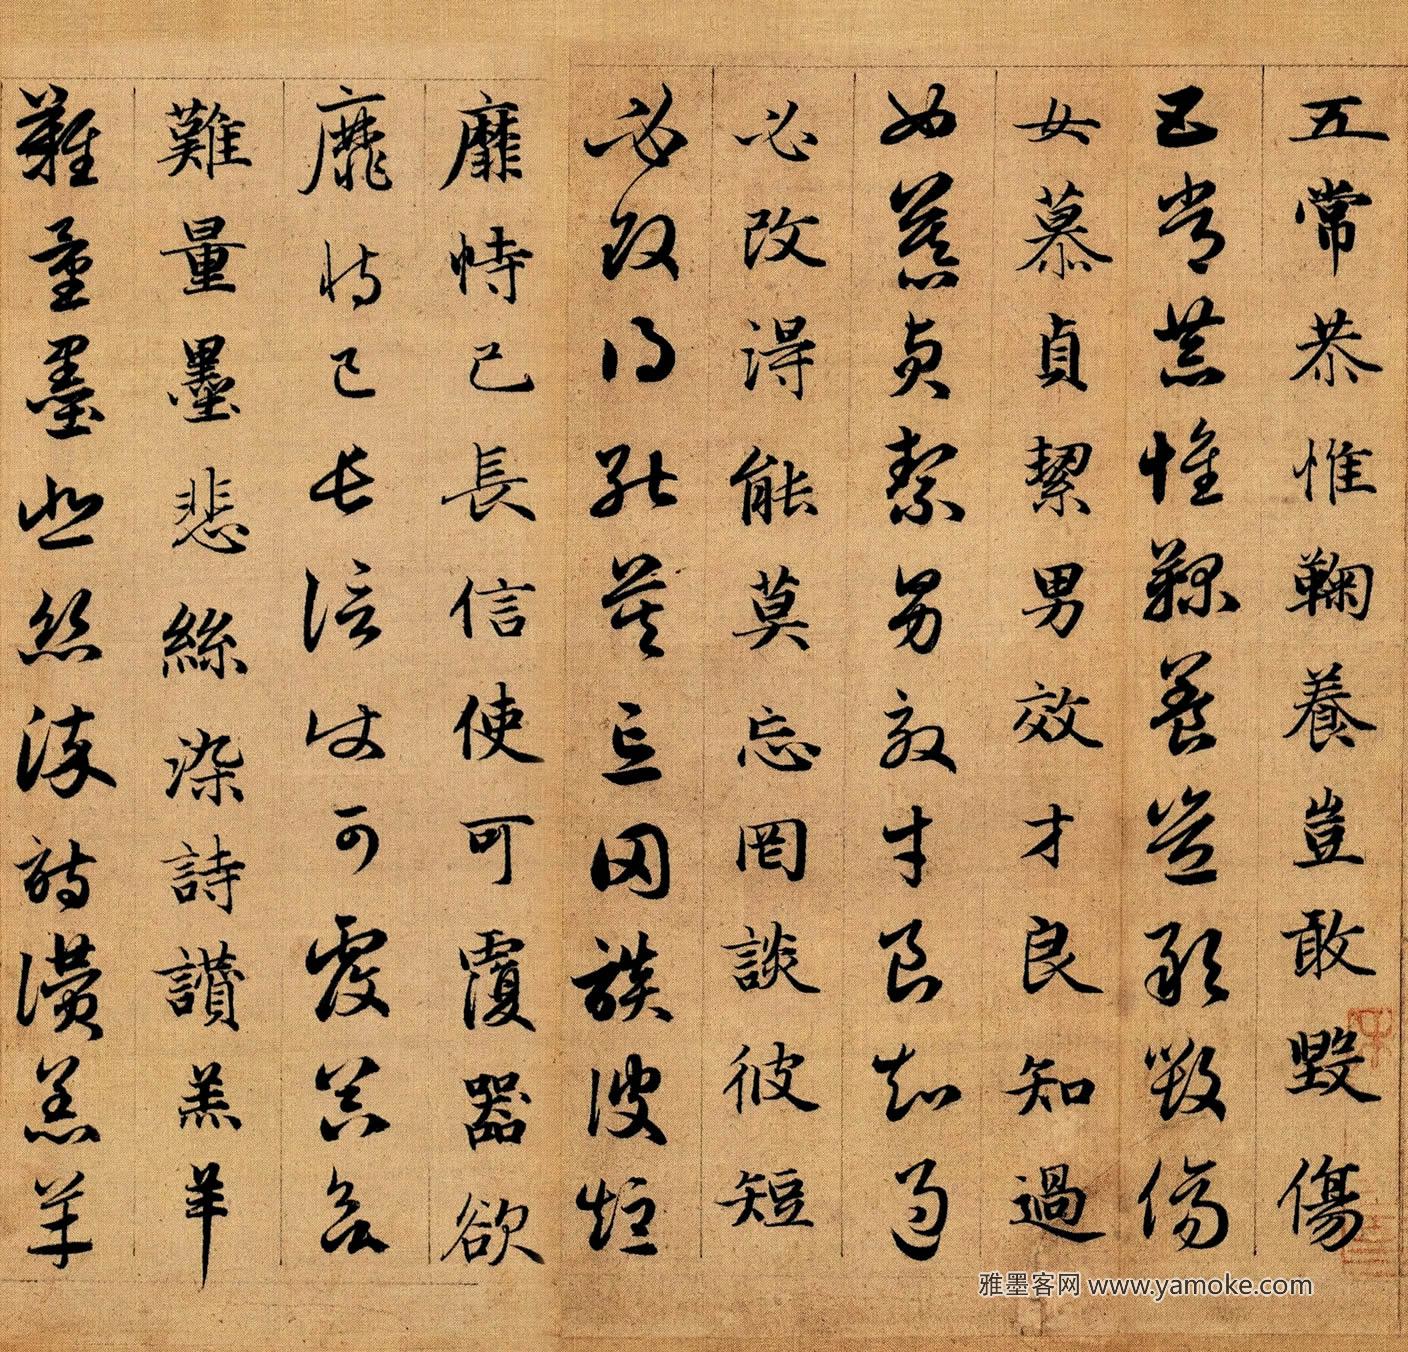 五常恭惟鞠養豈敢毀傷
五常恭惟鞠養豈敢毀傷
女慕貞絜男效才良知過
女慕貞絜男效才良知過
必改得能莫忘罔談彼短
必改得能莫忘罔談彼短
靡恃己長信使可覆器欲
靡恃己長信使可覆器欲
難量墨悲絲染詩讚羔羊
難量墨悲絲染詩讚羔羊
雅墨客网 www.yamoke.com